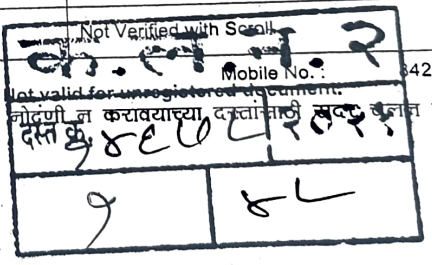 Not Verified with Scroll
क.ल.न. २
Mobile No. : 842
Not valid for unregistered document.
नोंदणी न करावयाच्या दस्तांसाठी सदर चलन
दस्त क्र.
१ ४८